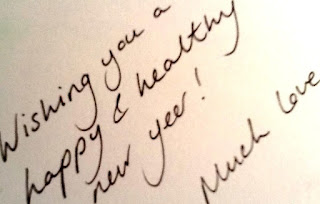 Wishing you a
happy & healthy
new year!
Much love